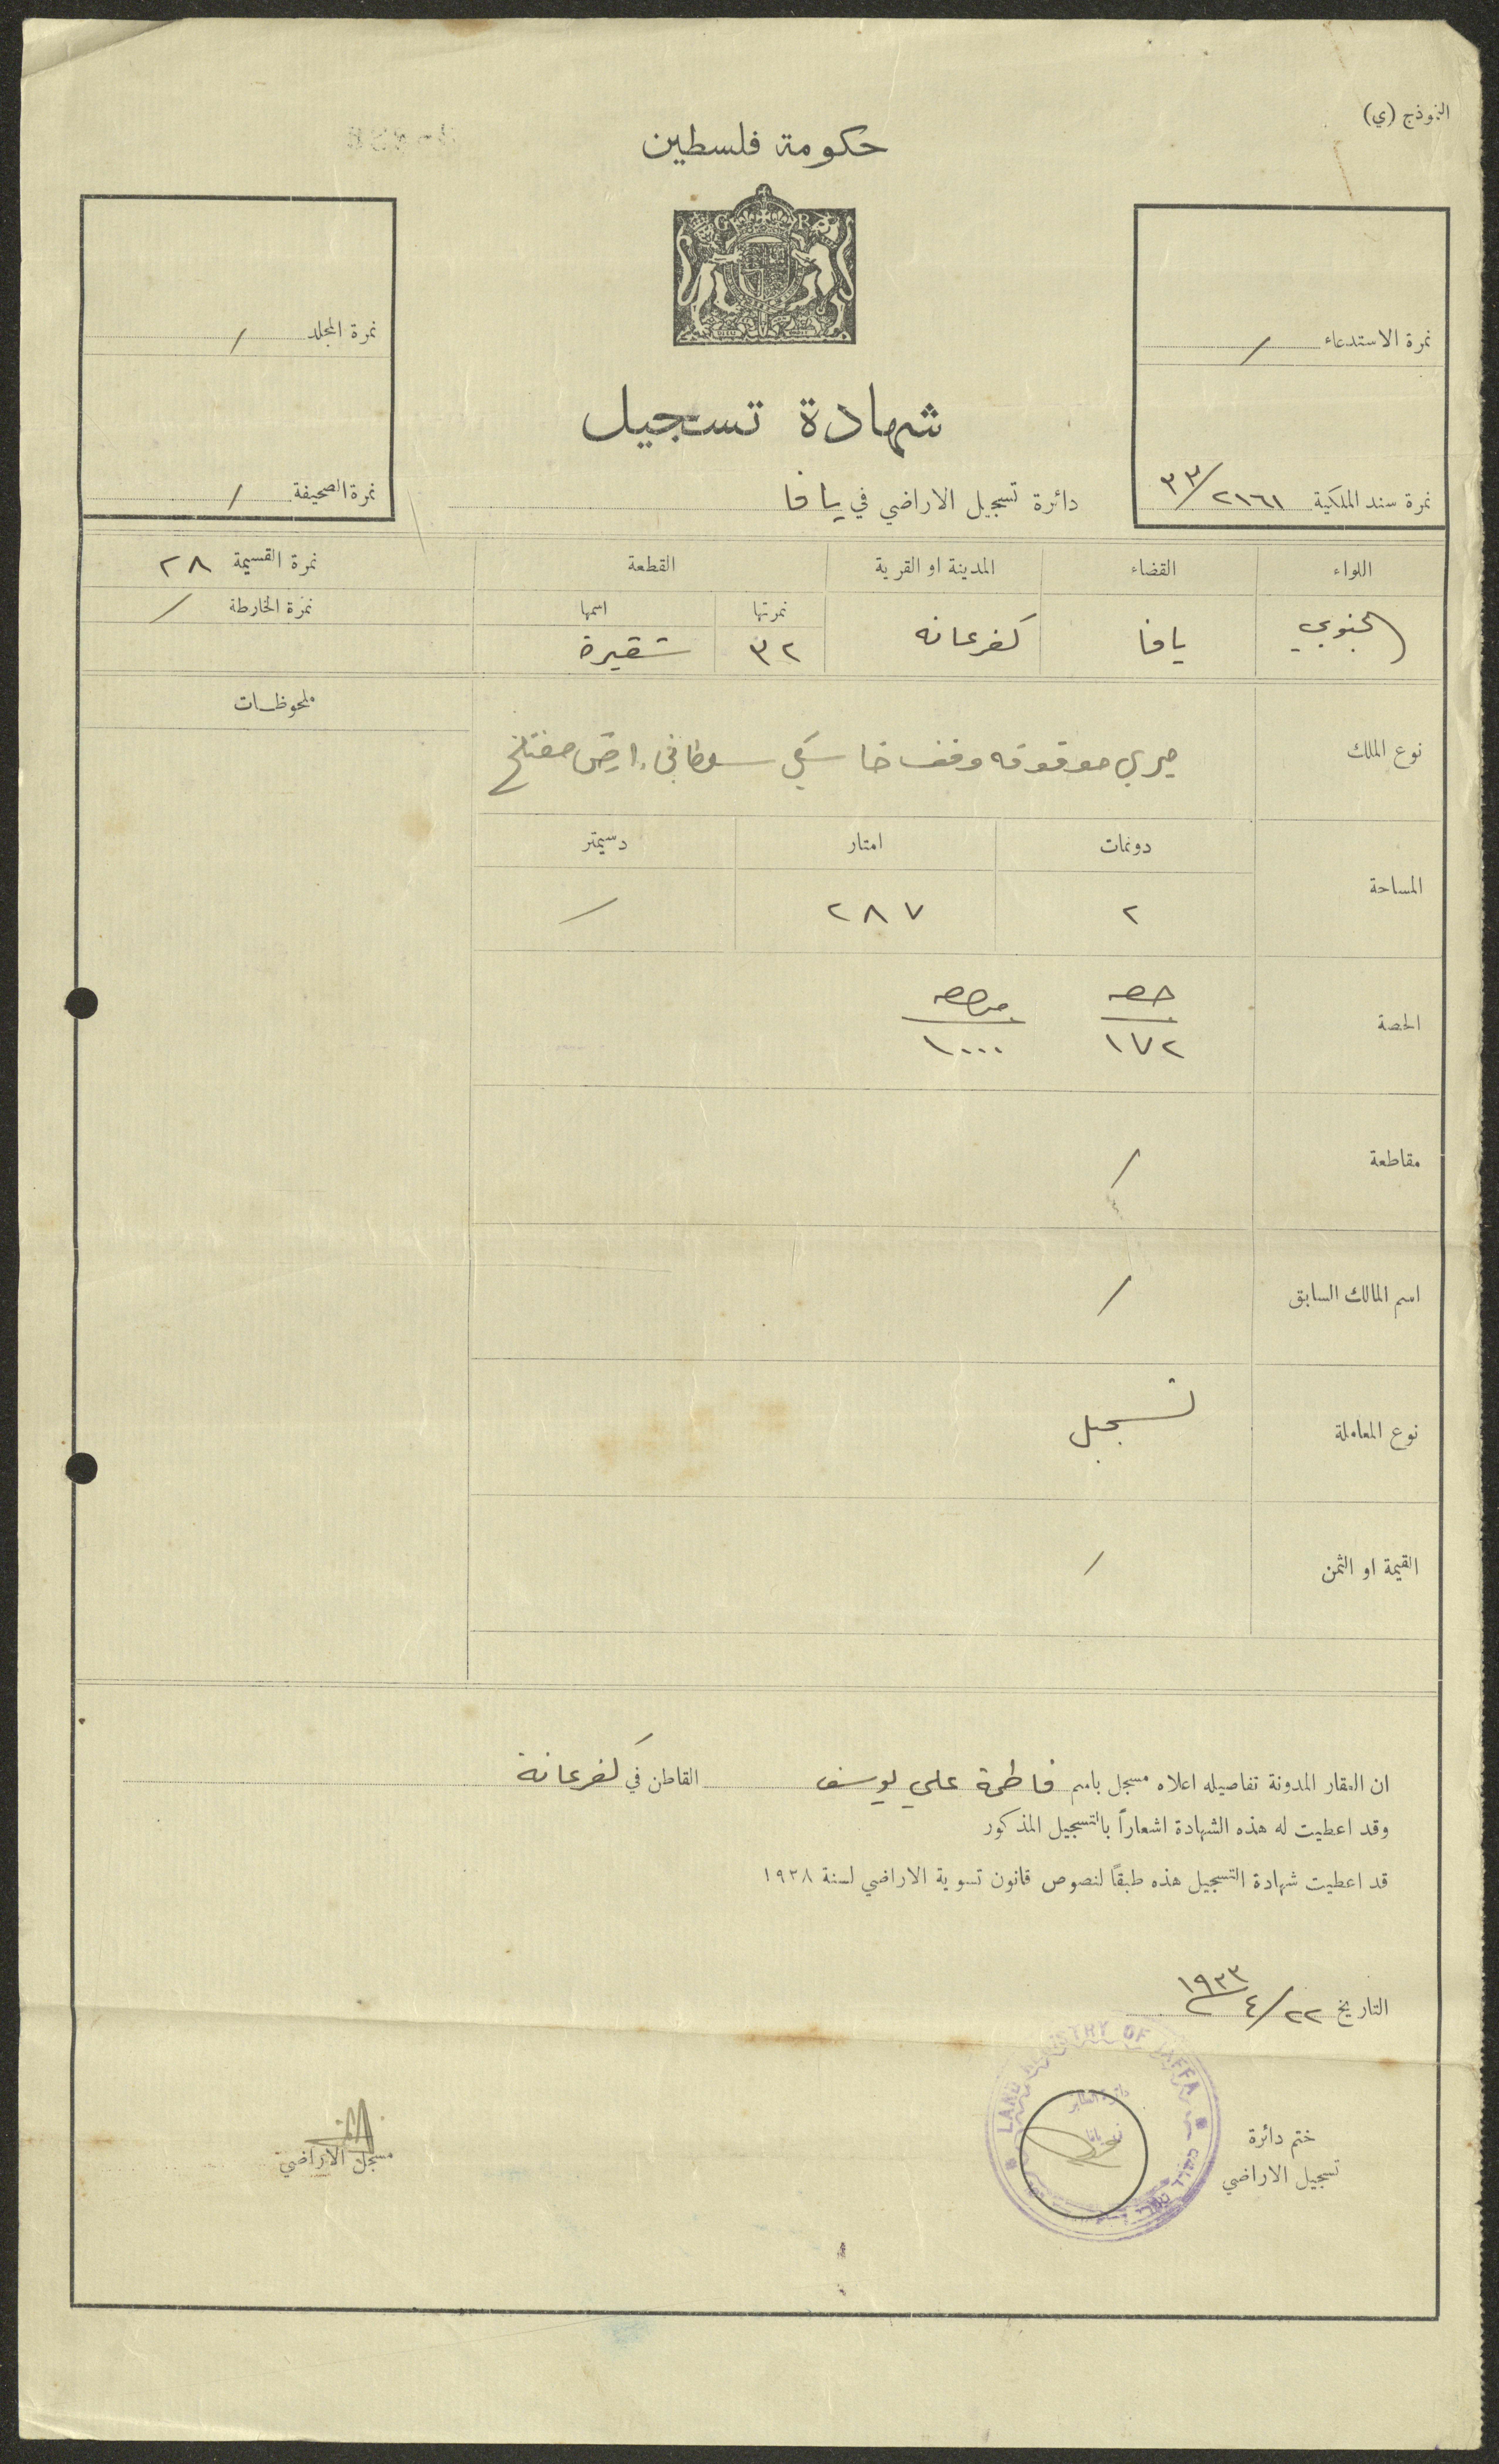 النموذج (ي)
حكومة فلسطين
G R
نمرة الاستدعاء /
نمرة سند الملكية ٢١٦١/٣٣
نمرة المجلد /
نمرة الصحيفة /
شهادة تسجيل
دائرة تسجيل الاراضي في يافا
اللواء القضاء المدينة او القرية القطعة نمرة القسيمة ٢٨
نمرتها اسمها نمرة الخارطة /
الجنوبي يافا كفرعانه ٣٢ شقيرة
ملحوظات
نوع الملك ميري موقوفه وقف خاسكي سلطاني، ارض مفتلح
المساحة دونمات امتار دسيمتر
٢ ٢٨٧ /
الحصة حصه من حصه
١٧٢ ١٠٠٠
مقاطعة /
اسم المالك السابق /
نوع المعاملة تسجيل
القيمة او الثمن /
ان العقار المدونة تفاصيله اعلاه مسجل باسم فاطمة علي يوسف القاطن في كفرعانة
وقد اعطيت له هذه الشهادة اشعاراً بالتسجيل المذكور
قد اعطيت شهادة التسجيل هذه طبقاً لنصوص قانون تسوية الاراضي لسنة ١٩٢٨
التاريخ ٢٢/٤/١٩٣٣
LAND REGISTRY OF JAFFA
ختم دائرة
تسجيل الاراضي
مسجل الاراضي